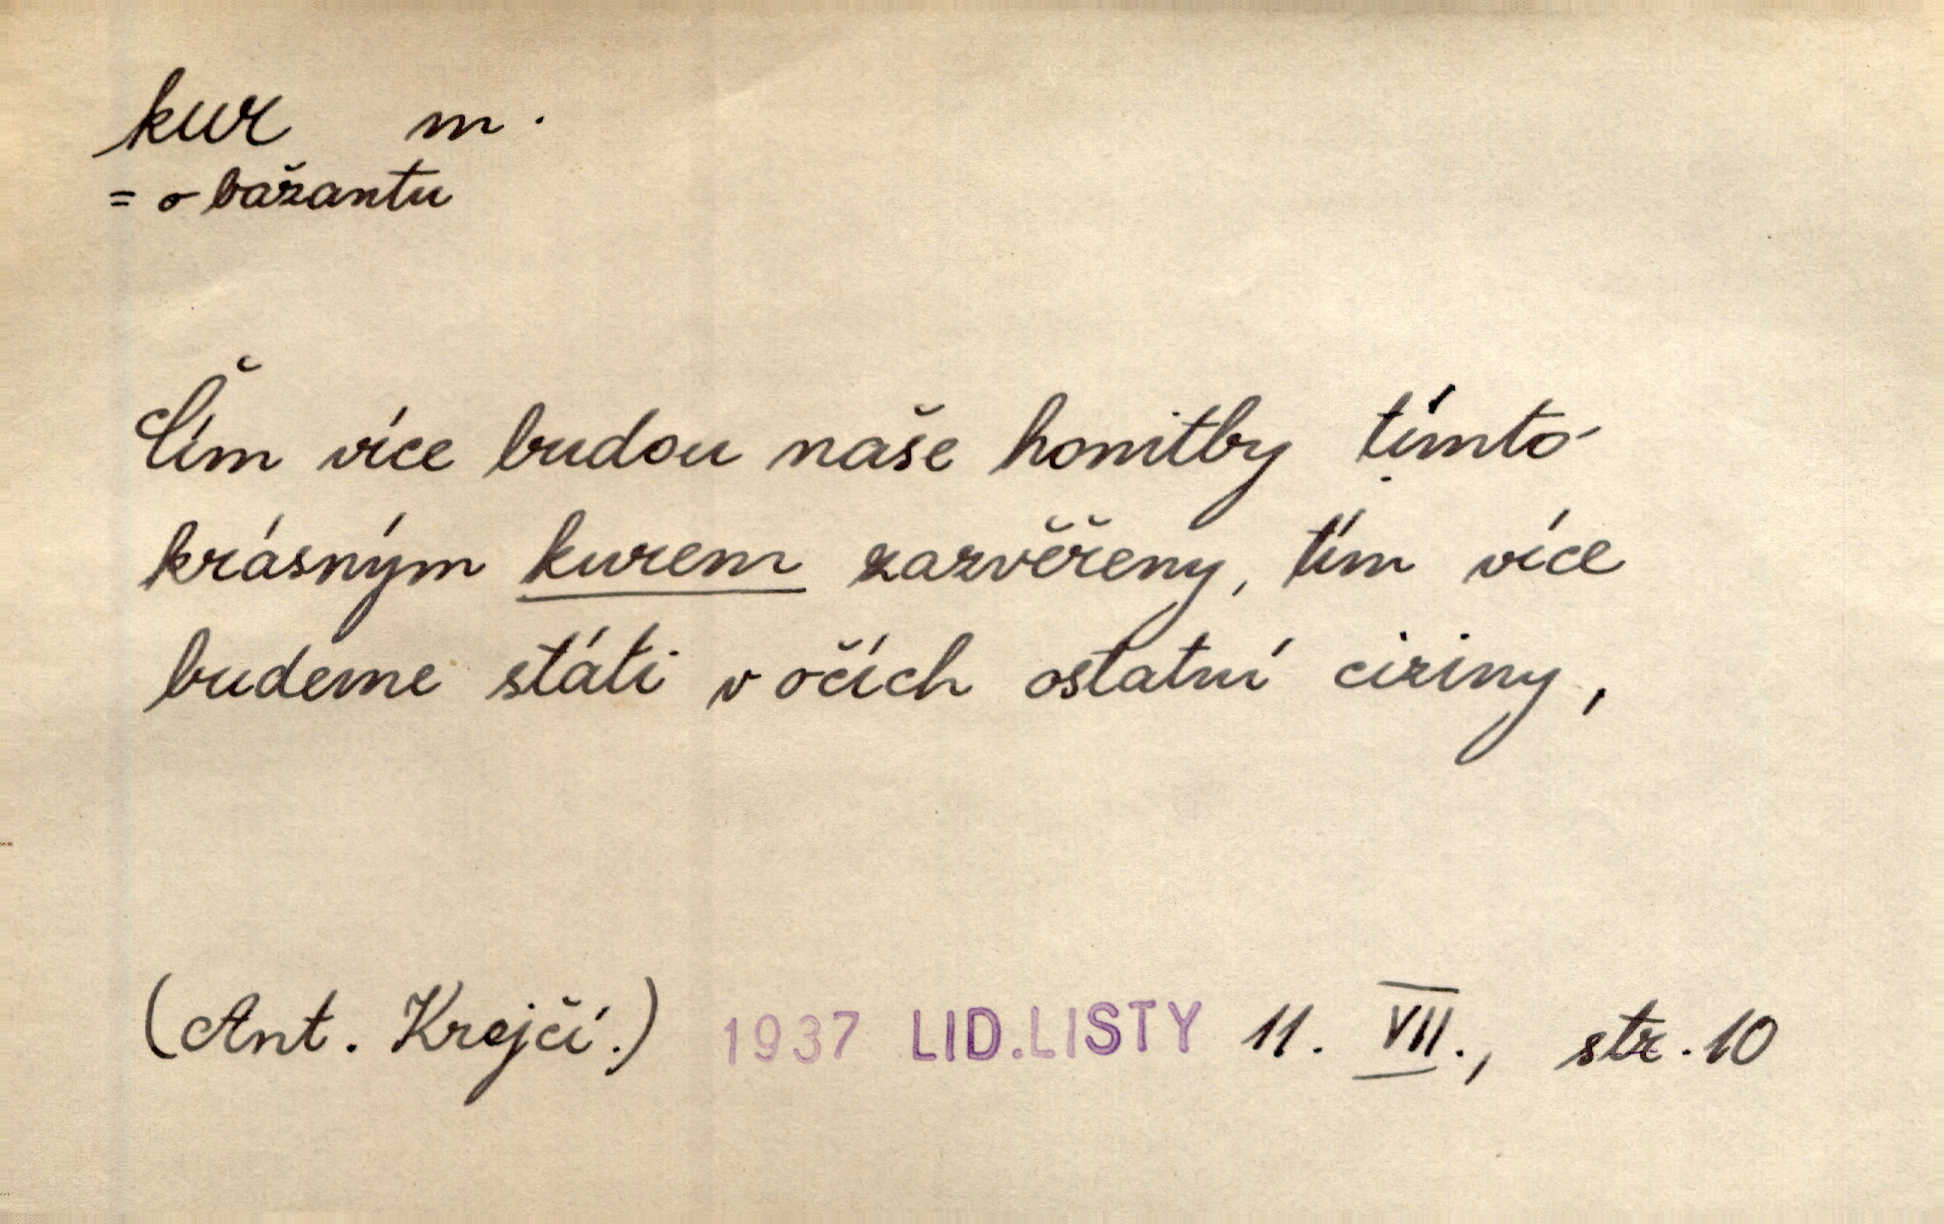 kur m.
= o bažantu
Čím více budou naše honitby tímto
krásným kurem zazvěřeny, tím více
budeme státi v očích ostatní ciziny,
(Ant. Krejčí.) 1937 LID. LISTY 11. VII., str. 10